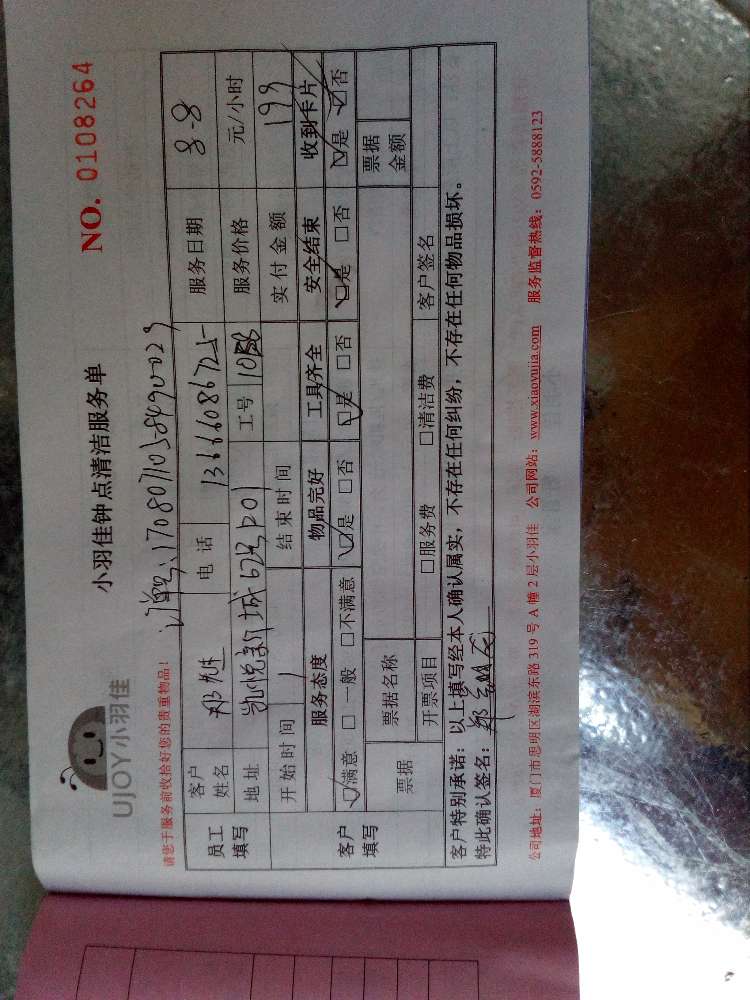 UJOY小羽佳
小羽佳钟点清洁服务单
NO. 0108264
请您于服务前收拾好您的贵重物品!
员工填写 客户姓名 郑 电话 13666086725 服务日期 8-8
地址 凯悦新城 工号 服务价格 元/小时
开始时间 结束时间 实付金额 199
客户填写 服务态度 物品完好 工具齐全 安全结束 收到卡片
□满意 □一般 □不满意 □是 □否 □是 □否 □是 □否 □是 □否
票据 票据名称 票据金额
开票项目 □服务费 □清洁费 客户签名
客户特别承诺:以上填写经本人确认属实,不存在任何纠纷,不存在任何物品损坏。
特此确认签名:郑
公司地址:厦门市思明区湖滨东路319号A幢2层小羽佳 公司网站:www.xiaoyujia.com 服务监督热线:0592-5888123